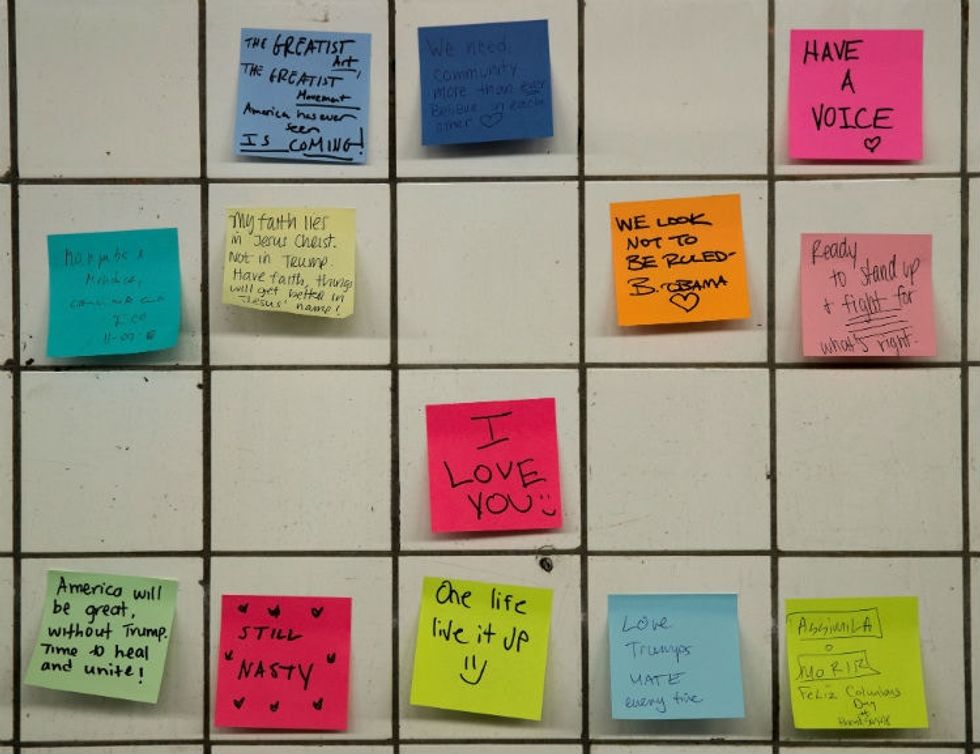 THE GREATIST
Art,
THE GREATIST
Movement
America has ever
seen
IS COMING!
We need
community
more than ever
Believe in each
other ♡
HAVE
A
VOICE
♡
My faith lies
in Jesus Christ.
Not in Trump.
Have faith, things
will get better in
Jesus' name!
WE LOOK
NOT TO
BE RULED-
B. OBAMA
♡
Ready
to stand up
+ fight for
what's right.
I
LOVE
YOU
America will
be great,
without Trump.
Time to heal
and unite!
STILL
NASTY
One life
live it up
Love
Trumps
HATE
every time
ASSIMILA
o
MORIR
FeLiz Columbus
Day